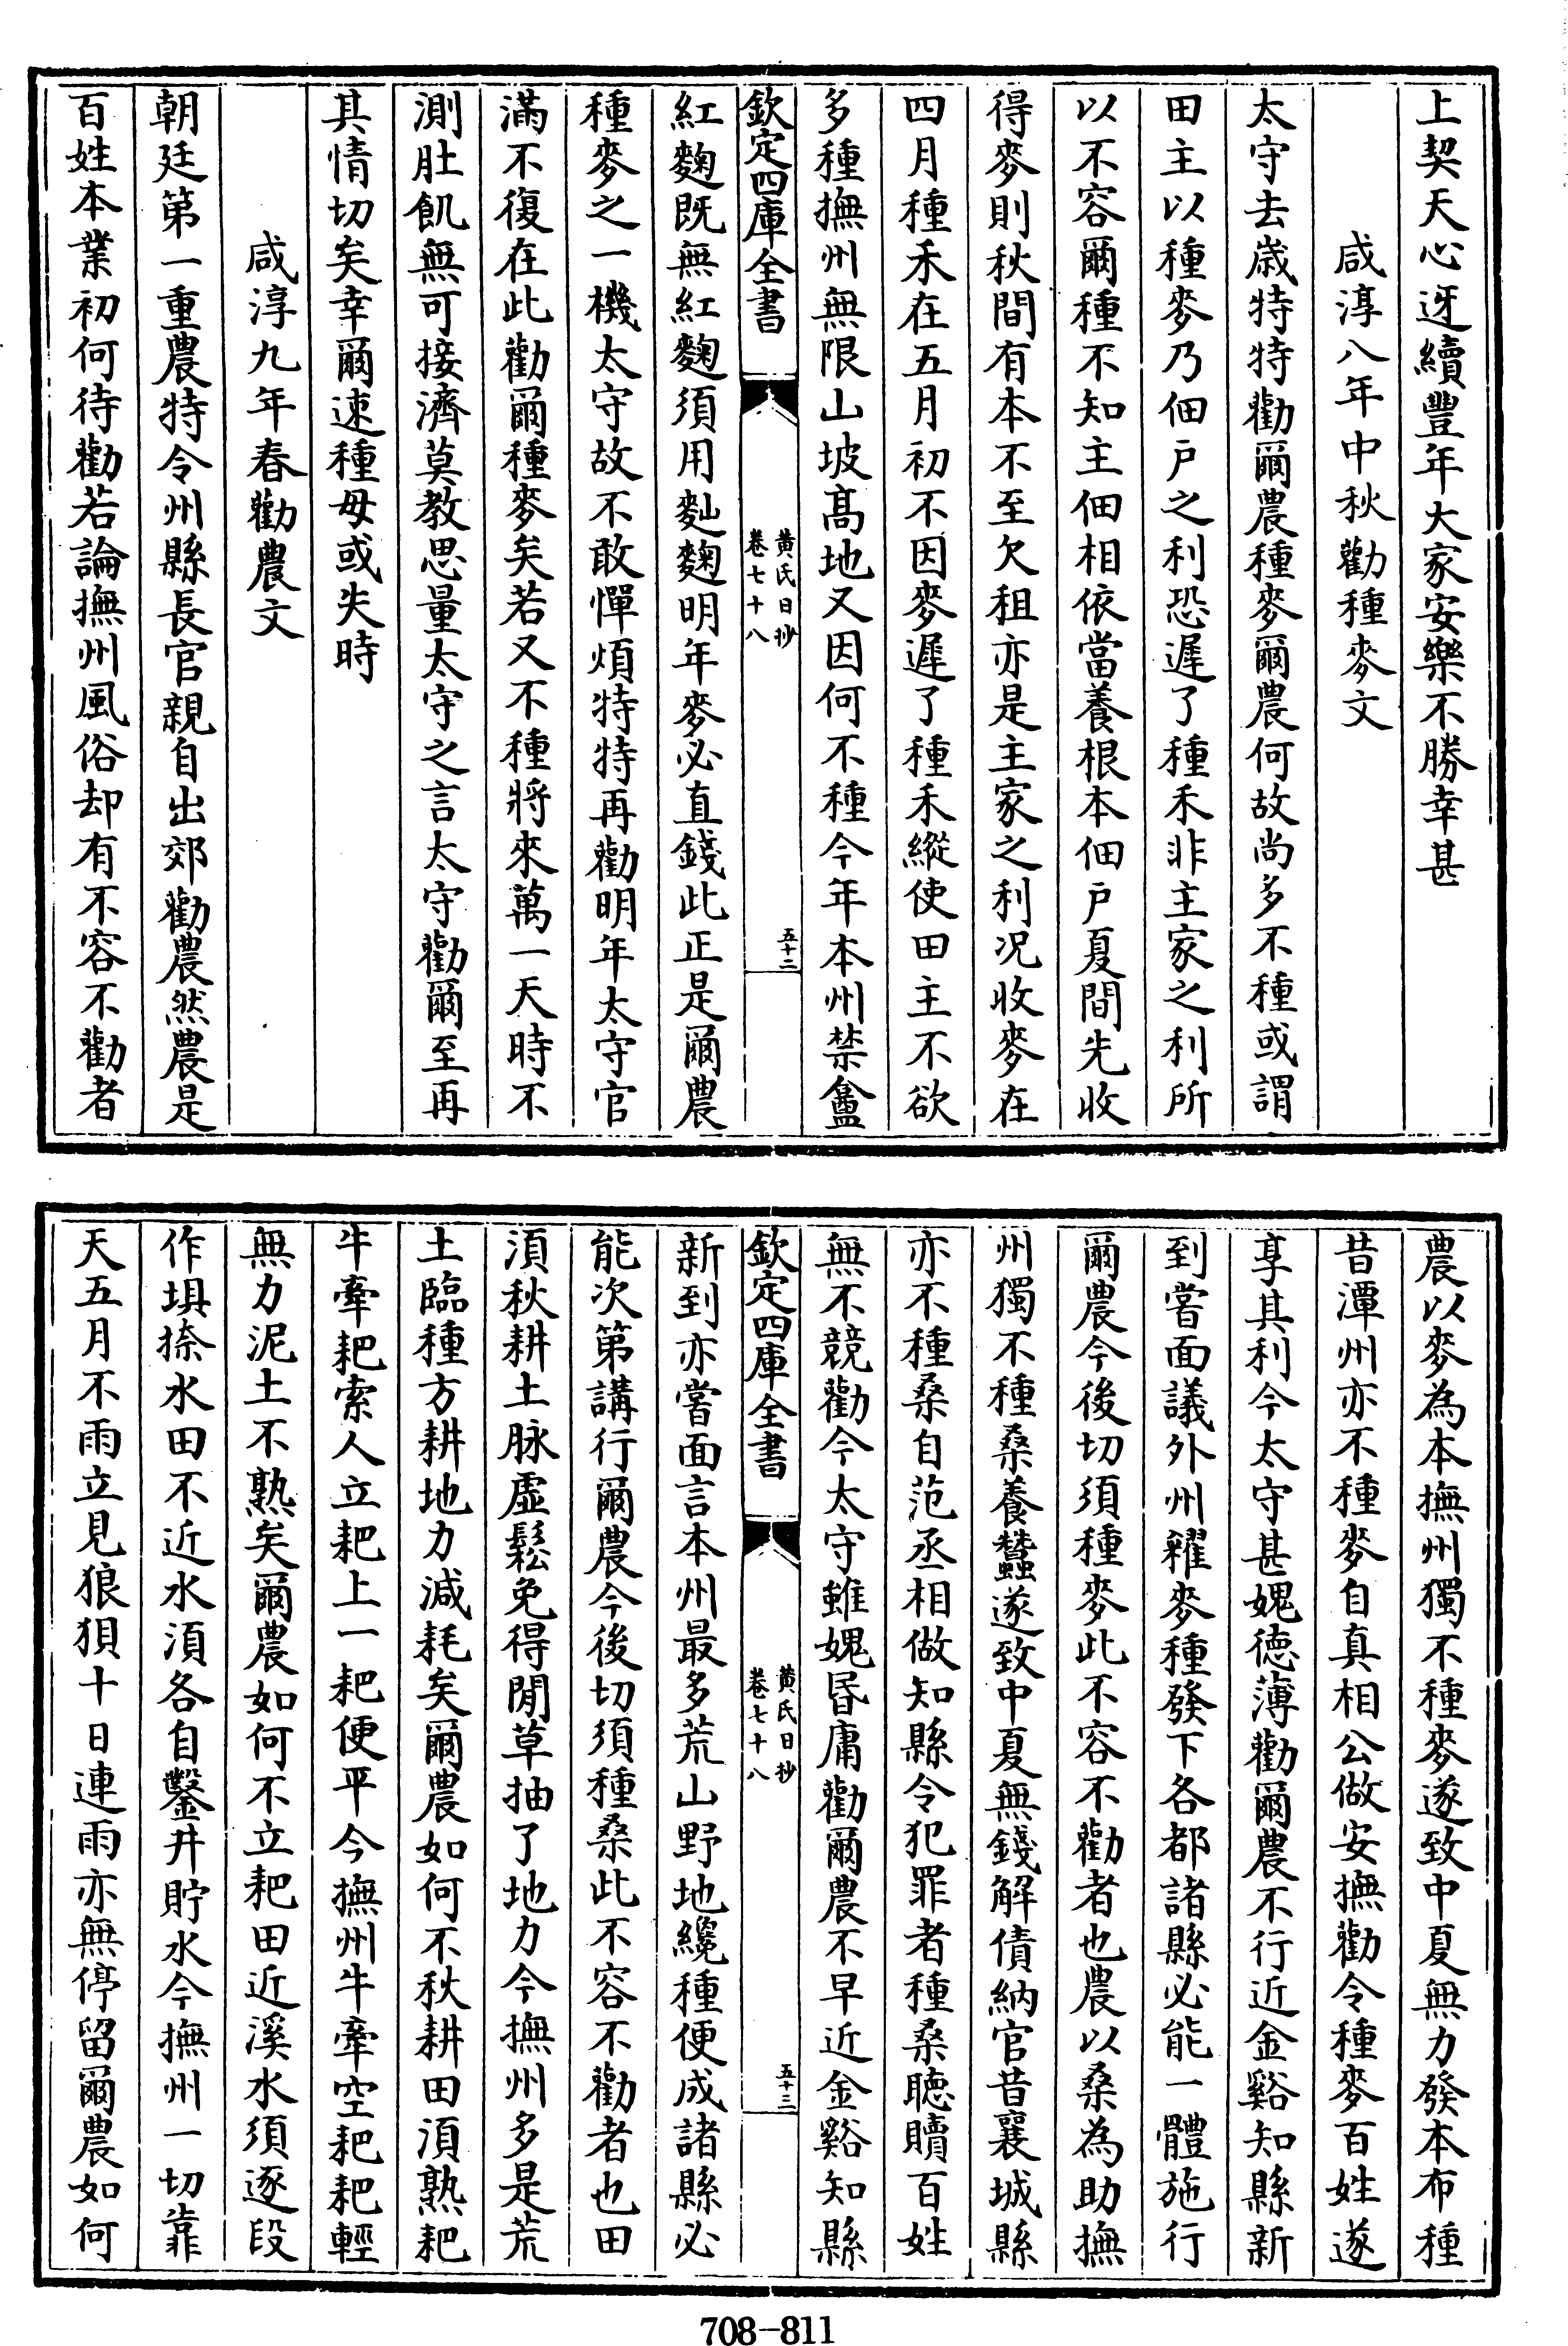 上契天心迓續豐年大家安樂不勝幸甚
咸淳八年中秋勸種麥文
太守去歳特特勸爾農種麥爾農何故尚多不種或謂
田主以種麥乃佃戸之利恐遲了種禾非主家之利所
以不容爾種不知主佃相依當養根本佃戸夏間先收
得麥則秋間有本不至欠租亦是主家之利况收麥在
四月種禾在五月初不因麥遲了種禾縱使田主不欲
多種撫州無限山坡髙地又因何不種今年本州禁盦
欽定四庫全書
黄氏日抄
卷七十八
五十二
紅麴既無紅麴須用麨麴明年麥必直錢此正是爾農
種麥之一機太守故不敢憚煩特特再勸明年太守官
滿不復在此勸爾種麥矣若又不種將來萬一天時不
測肚飢無可接濟莫教思量太守之言太守勸爾至再
其情切矣幸爾速種毋或失時
咸淳九年春勸農文
朝廷第一重農特令州縣長官親自出郊勸農然農是
百姓本業初何待勸若論撫州風俗却有不容不勸者
農以麥為本撫州獨不種麥遂致中夏無力發本布種
昔潭州亦不種麥自真相公做安撫勸令種麥百姓遂
享其利今太守甚媿徳薄勸爾農不行近金谿知縣新
到嘗面議外州糴麥種發下各都諸縣必能一體施行
爾農今後切須種麥此不容不勸者也農以桑為助撫
州獨不種桑養蠶遂致中夏無錢解債納官昔襄城縣
亦不種桑自范丞相做知縣令犯罪者種桑聴贖百姓
無不競勸今太守雖媿昬庸勸爾農不早近金谿知縣
欽定四庫全書
黄氏日抄
卷七十八
五十三
新到亦嘗面言本州最多荒山野地纔種便成諸縣必
能次第講行爾農今後切須種桑此不容不勸者也田
須秋耕土脉虛鬆免得閒草抽了地力今撫州多是荒
土臨種方耕地力減耗矣爾農如何不秋耕田須熟耙
牛牽耙索人立耙上一耙便平今撫州牛牽空耙耙輕
無力泥土不熟矣爾農如何不立耙田近溪水須逐段
作埧捺水田不近水須各自鑿井貯水今撫州一切靠
天五月不雨立見狼狽十日連雨亦無停留爾農如何
708-811